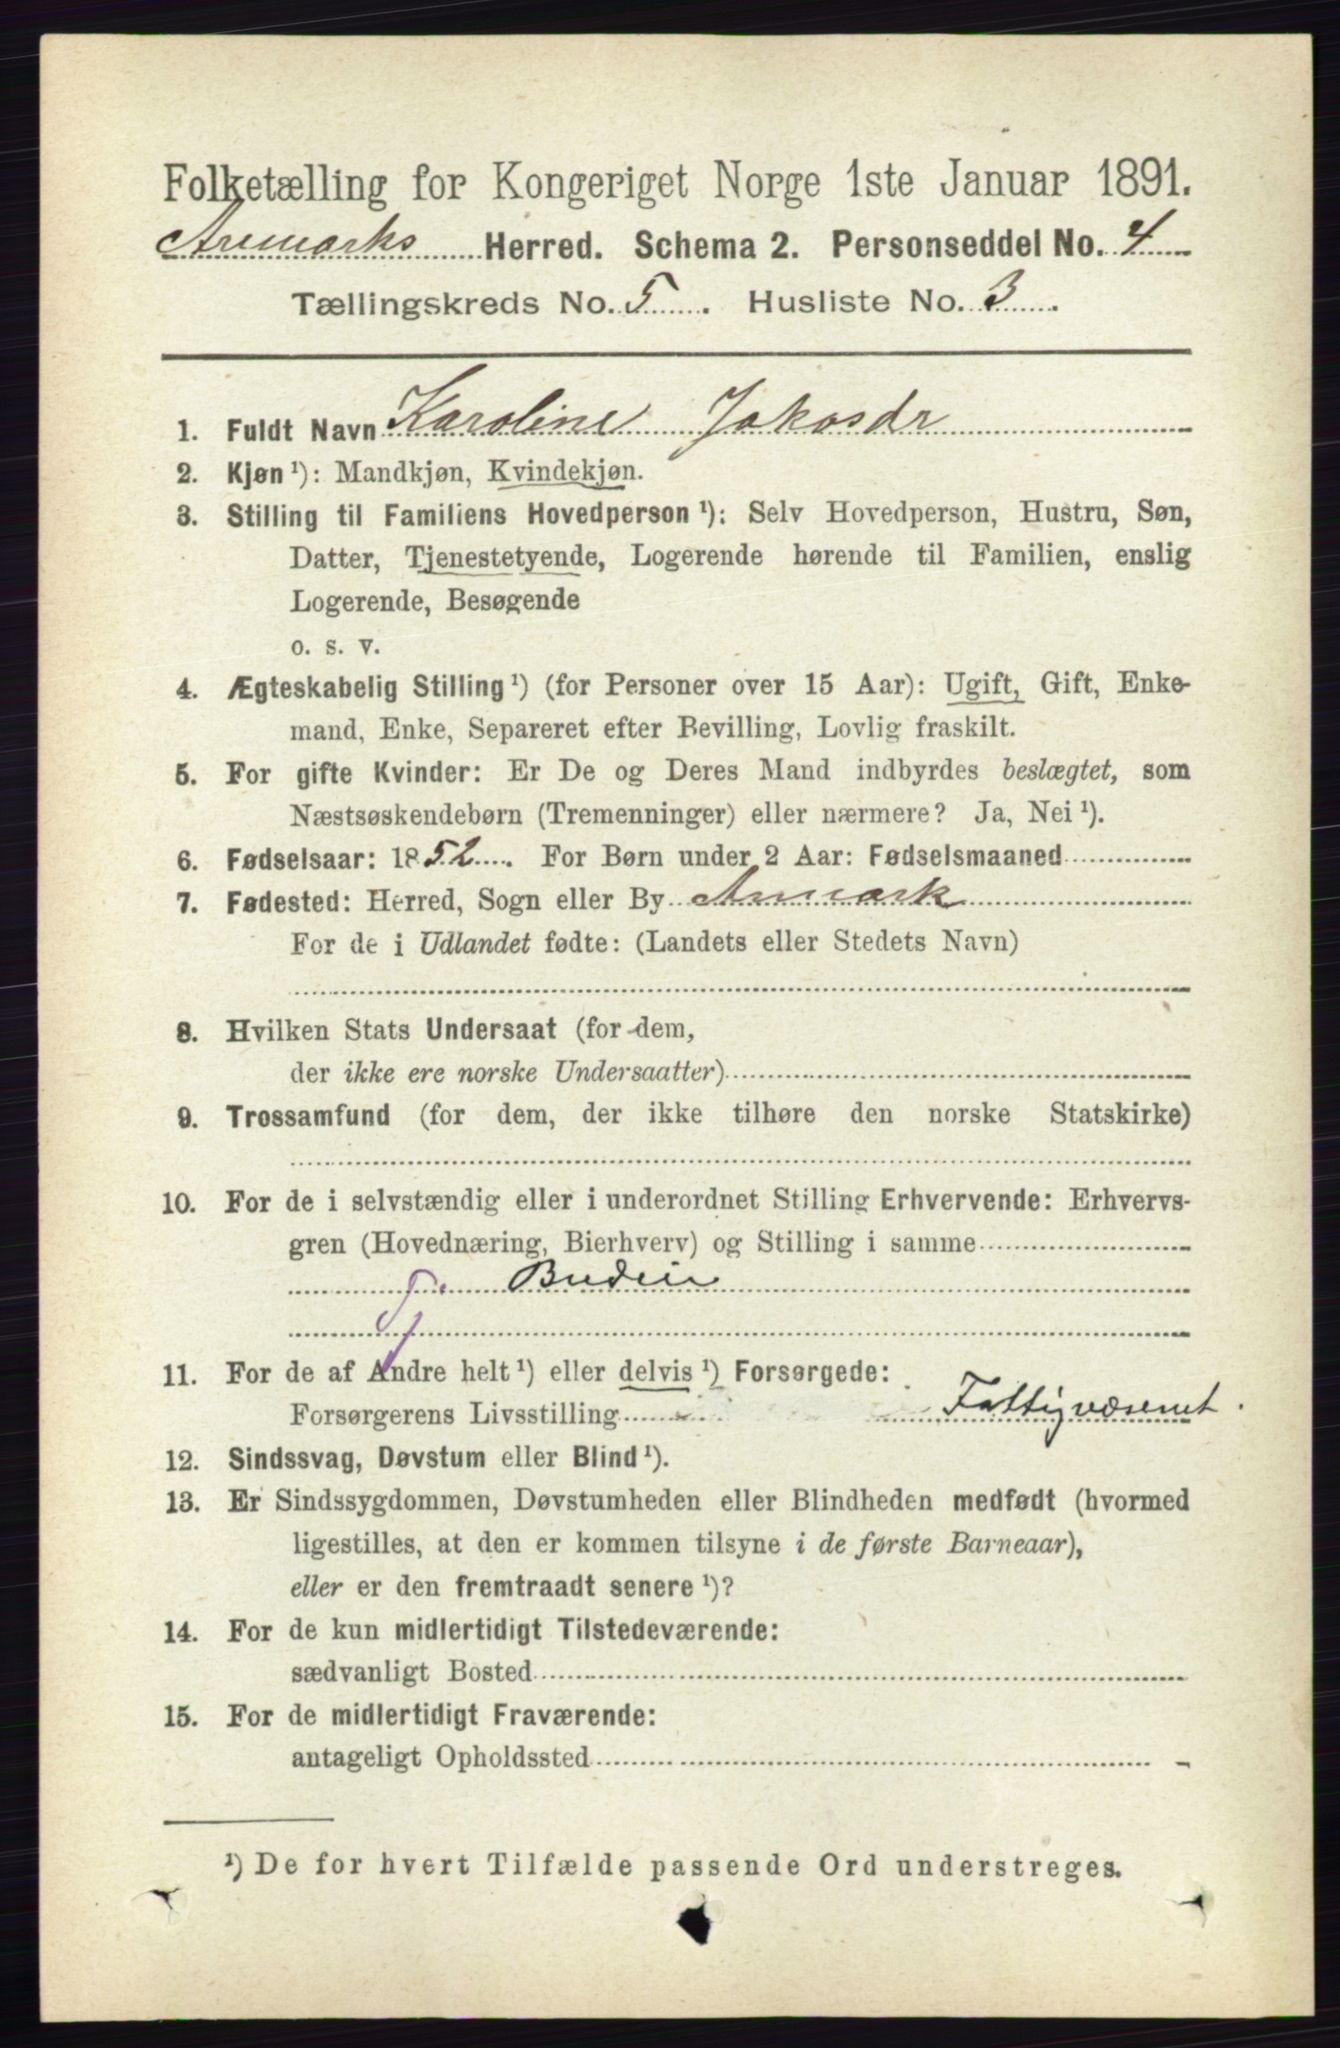 Folketælling for Kongeriget Norge 1ste Januar 1891.
Aremarks Herred. Schema 2. Personseddel No. 4
Tællingskreds No. 5. Husliste No. 3.
1. Fuldt Navn Karoline Jakosdr
2. Kjøn ¹): Mandkjøn, Kvindekjøn.
3. Stilling til Familiens Hovedperson ¹): Selv Hovedperson, Hustru, Søn,
Datter, Tjenestetyende, Logerende hørende til Familien, enslig
Logerende, Besøgende
o. s. v.
4. Ægteskabelig Stilling ¹) (for Personer over 15 Aar): Ugift, Gift, Enke-
mand, Enke, Separeret efter Bevilling, Lovlig fraskilt.
5. For gifte Kvinder: Er De og Deres Mand indbyrdes beslægtet, som
Næstsøskendebørn (Tremenninger) eller nærmere? Ja, Nei ¹).
6. Fødselsaar: 1852. For Børn under 2 Aar: Fødselsmaaned
7. Fødested: Herred, Sogn eller By Aremark
For de i Udlandet fødte: (Landets eller Stedets Navn)
8. Hvilken Stats Undersaat (for dem,
der ikke ere norske Undersaatter)
9. Trossamfund (for dem, der ikke tilhøre den norske Statskirke)
10. For de i selvstændig eller i underordnet Stilling Erhvervende: Erhvervs-
gren (Hovednæring, Bierhverv) og Stilling i samme
Tj. Budeie
11. For de af Andre helt ¹) eller delvis ¹) Forsørgede:
Forsørgerens Livsstilling Fattigvæsenet.
12. Sindssvag, Døvstum eller Blind ¹).
13. Er Sindssygdommen, Døvstumheden eller Blindheden medfødt (hvormed
ligestilles, at den er kommen tilsyne i de første Barneaar),
eller er den fremtraadt senere ¹)?
14. For de kun midlertidigt Tilstedeværende:
sædvanligt Bosted
15. For de midlertidigt Fraværende:
antageligt Opholdssted
¹) De for hvert Tilfælde passende Ord understreges.